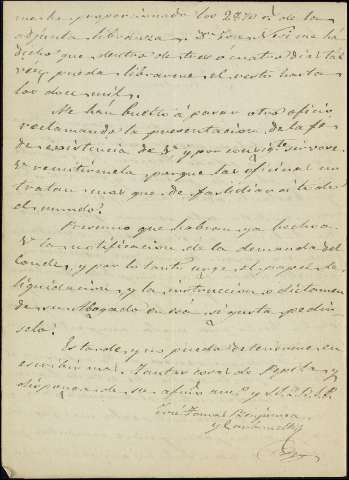 me ha proporcionado los 2870 rs de la
adjunta libranza. Dn José me ha
dicho que dentro de tres ó cuatro dias tal
vez pueda librarme el resto hasta
los doce mil.
Me han buelto á pasar otro oficio
reclamando la presentacion de la fé
de existencia de V. y por consigte sirvase
V. remitirmela porque las oficinas no
tratan mas que de fastidiar á todo
el mundo.
Presumo que habran ya hecho a
V. la notificacion de la demanda del
Conde, y por lo tanto urge el papel de
liquidacion y la instruccion o dictamen
de su Abogado en esa si gusta pedir-
selo.
Es tarde, y no puedo detenerme en
escribir mas. Tantas cosas de Pepita y
disponga de su afmo amo y S.S.Q.S.M.B.
José Tomas
y